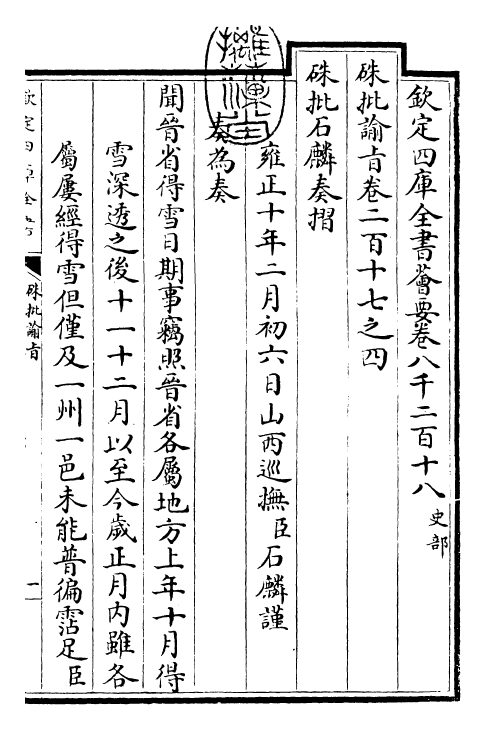 欽定四庫全書薈要卷八千二百十八 史部
硃批諭旨卷二百十七之四
硃批石麟奏摺
雍正十年二月初六日山西巡撫臣石麟謹
奏為奏
聞晉省得雪日期事竊照晉省各屬地方上年十月得
雪深透之後十一十二月以至今歲正月內雖各
屬屢經得雪但僅及一州一邑未能普徧霑足臣
欽定四庫全書
硃批諭旨
一